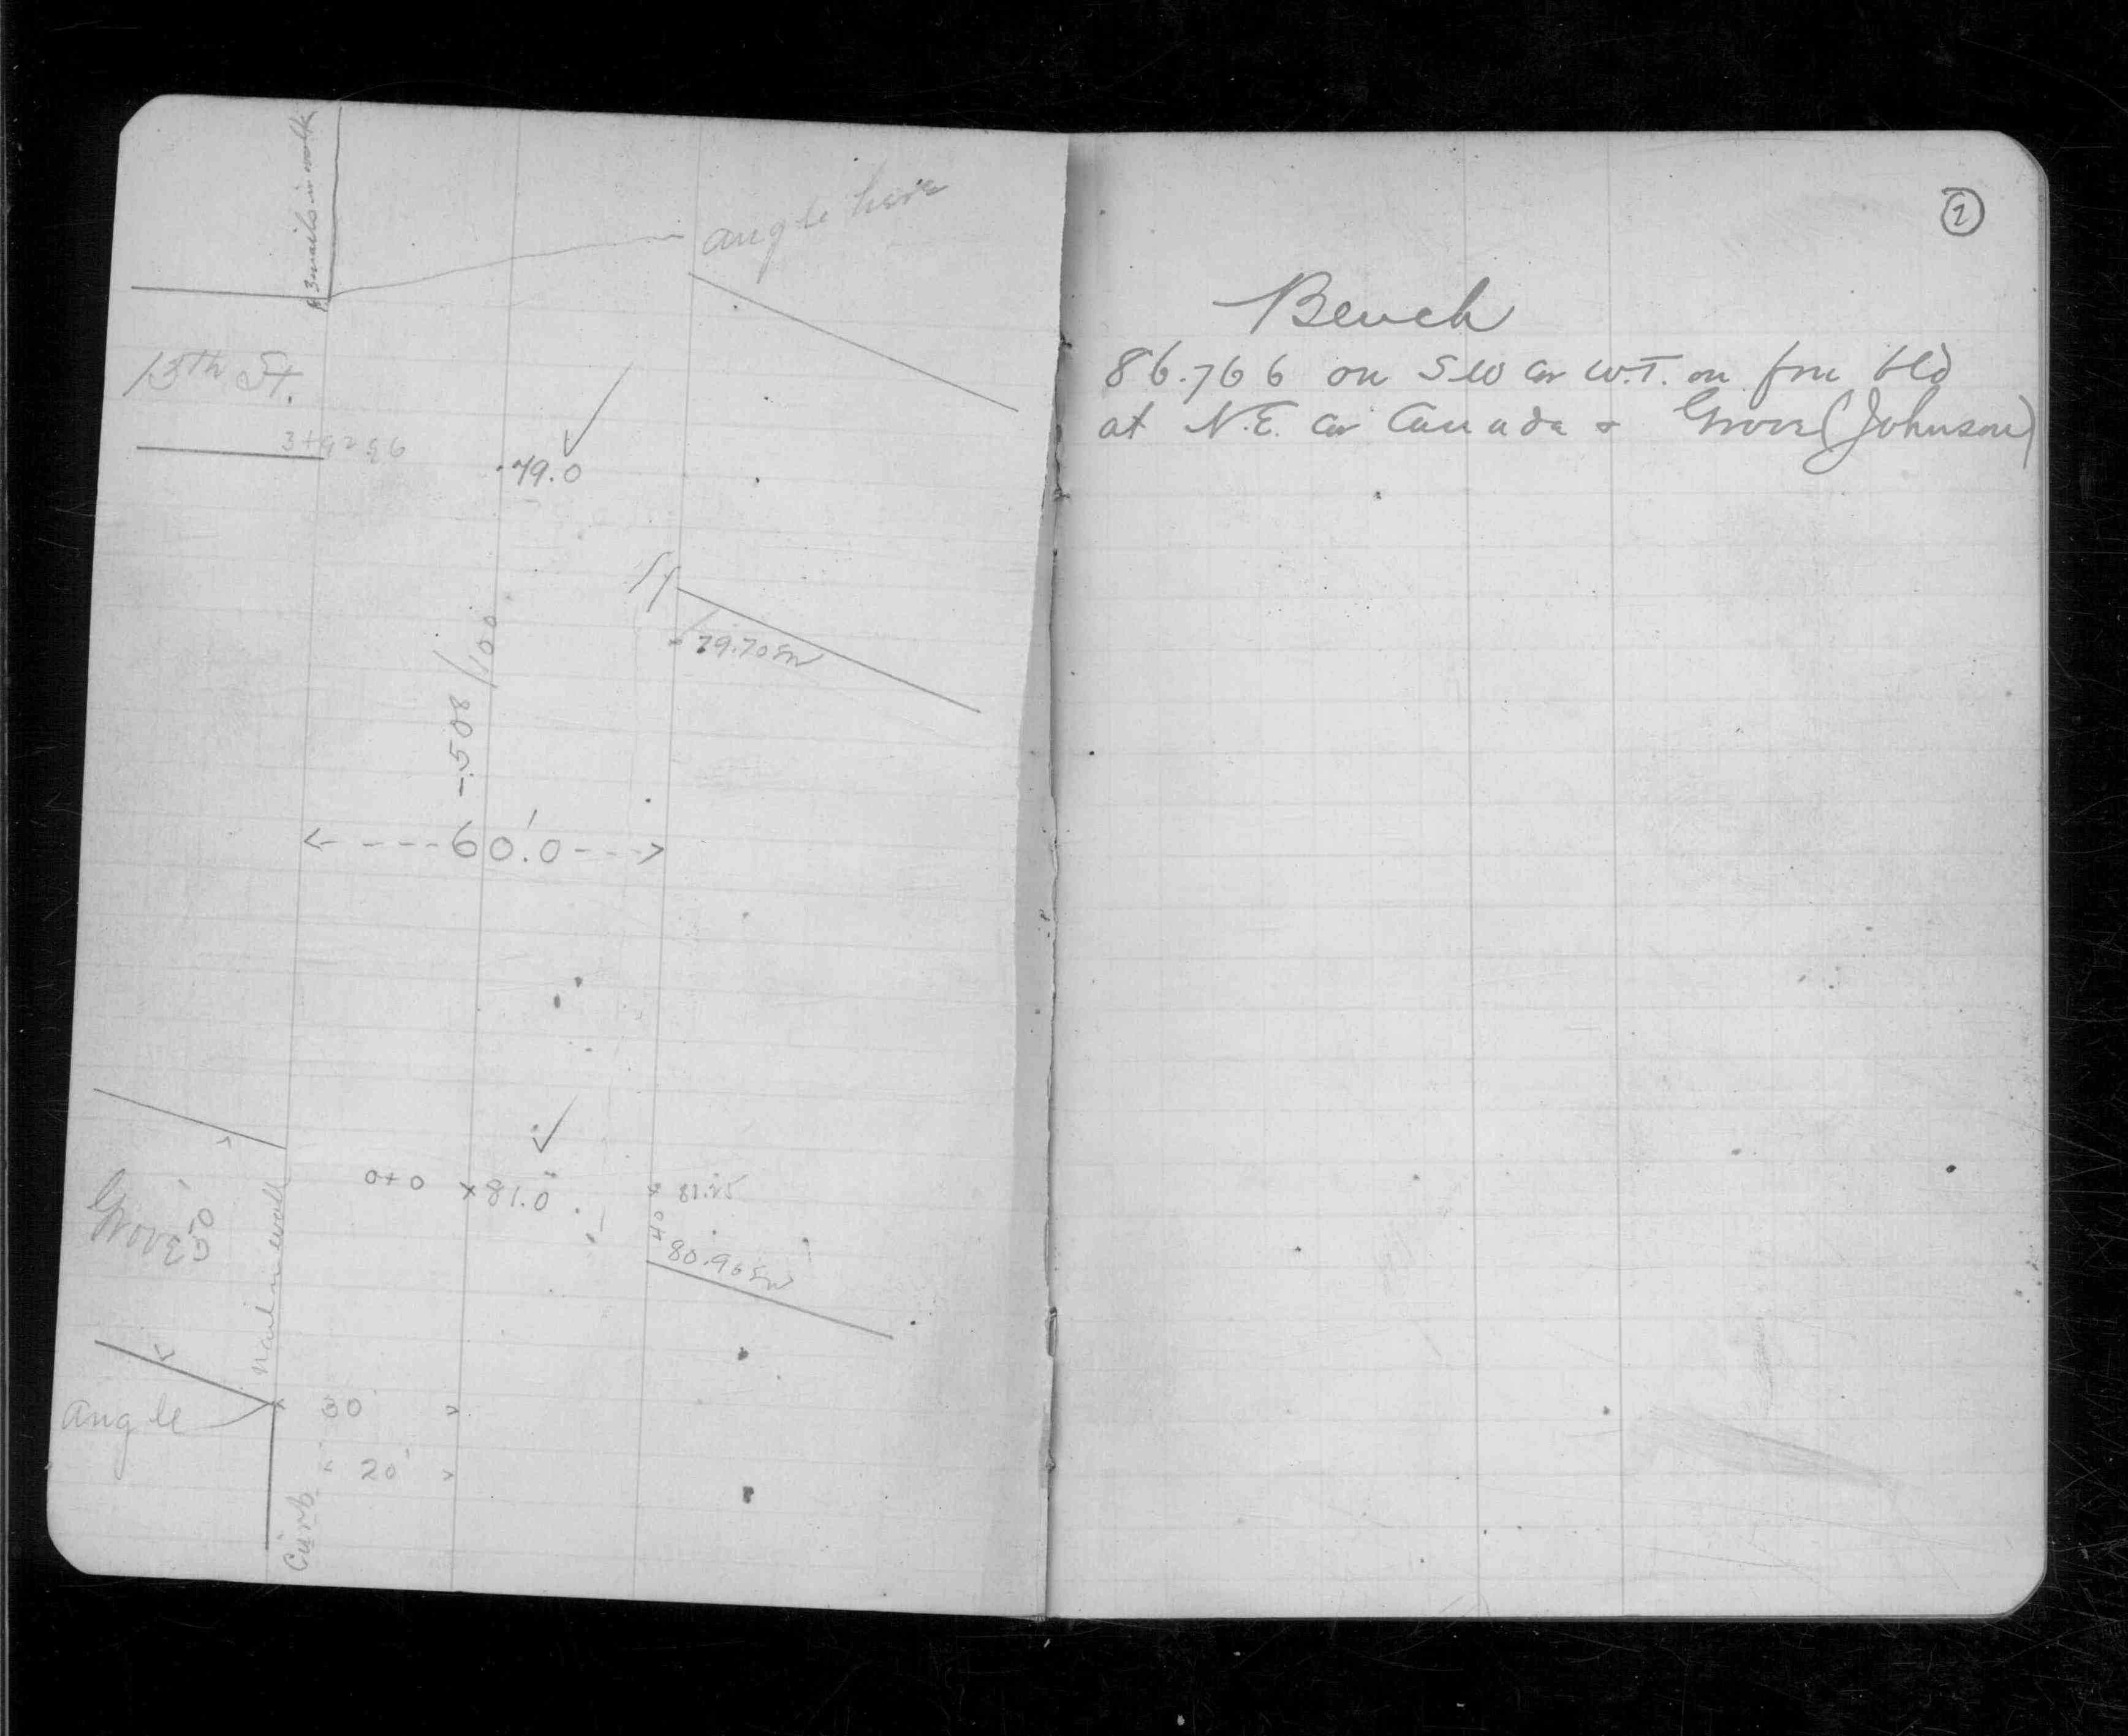 3 nails in walk
angle here
13th St.
79.0
St
79.70 SW
-.508/100
60.0'
0+0 81.0
81.25
40
Grove
50'
80.96 SW
nail in wall
angle
30
20'
Curb
2
Bench
86.766 on SW Cor W.T. on bld
at N.E. Cor Canada & Grove (Johnson)